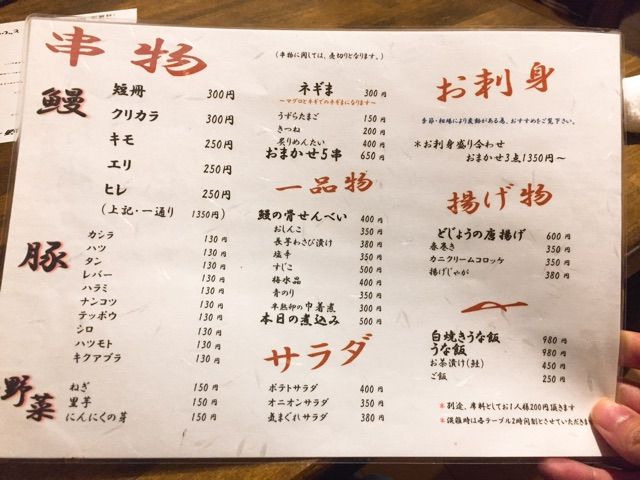 串物
（串物に関しては、売切りとなります。）
鰻
短冊 300円
クリカラ 300円
キモ 250円
エリ 250円
ヒレ 250円
（上記・一通り 1350円）
豚
カシラ 130円
ハツ 130円
タン 130円
レバー 130円
ハラミ 130円
ナンコツ 130円
テッポウ 130円
シロ 130円
ハツモト 130円
キクアブラ 130円
野菜
ねぎ 150円
里芋 150円
にんにくの芽 150円
ネギま 300円
～マグロとネギでのネギまになります～
うずらたまご 150円
きつね 200円
炙りめんたい 400円
おまかせ5串 650円
一品物
鰻の骨せんべい 400円
おしんこ 350円
長芋わさび漬け 380円
塩辛 350円
すじこ 500円
梅水晶 400円
青のり 350円
半熟卵の巾着煮 300円
本日の煮込み 500円
サラダ
ポテトサラダ 400円
オニオンサラダ 350円
気まぐれサラダ 380円
お刺身
季節・相場により変動がある為、おすすめをご覧下さい。
＊お刺身盛り合わせ
おまかせ3点1350円～
揚げ物
どじょうの唐揚げ 600円
春巻き 350円
カニクリームコロッケ 350円
揚げじゃが 380円
白焼きうな飯 980円
うな飯 980円
お茶漬け(鮭) 450円
ご飯 250円
＊別途、席料としてお1人様200円頂きます
＊混雑時は各テーブル2時間制とさせていただきま